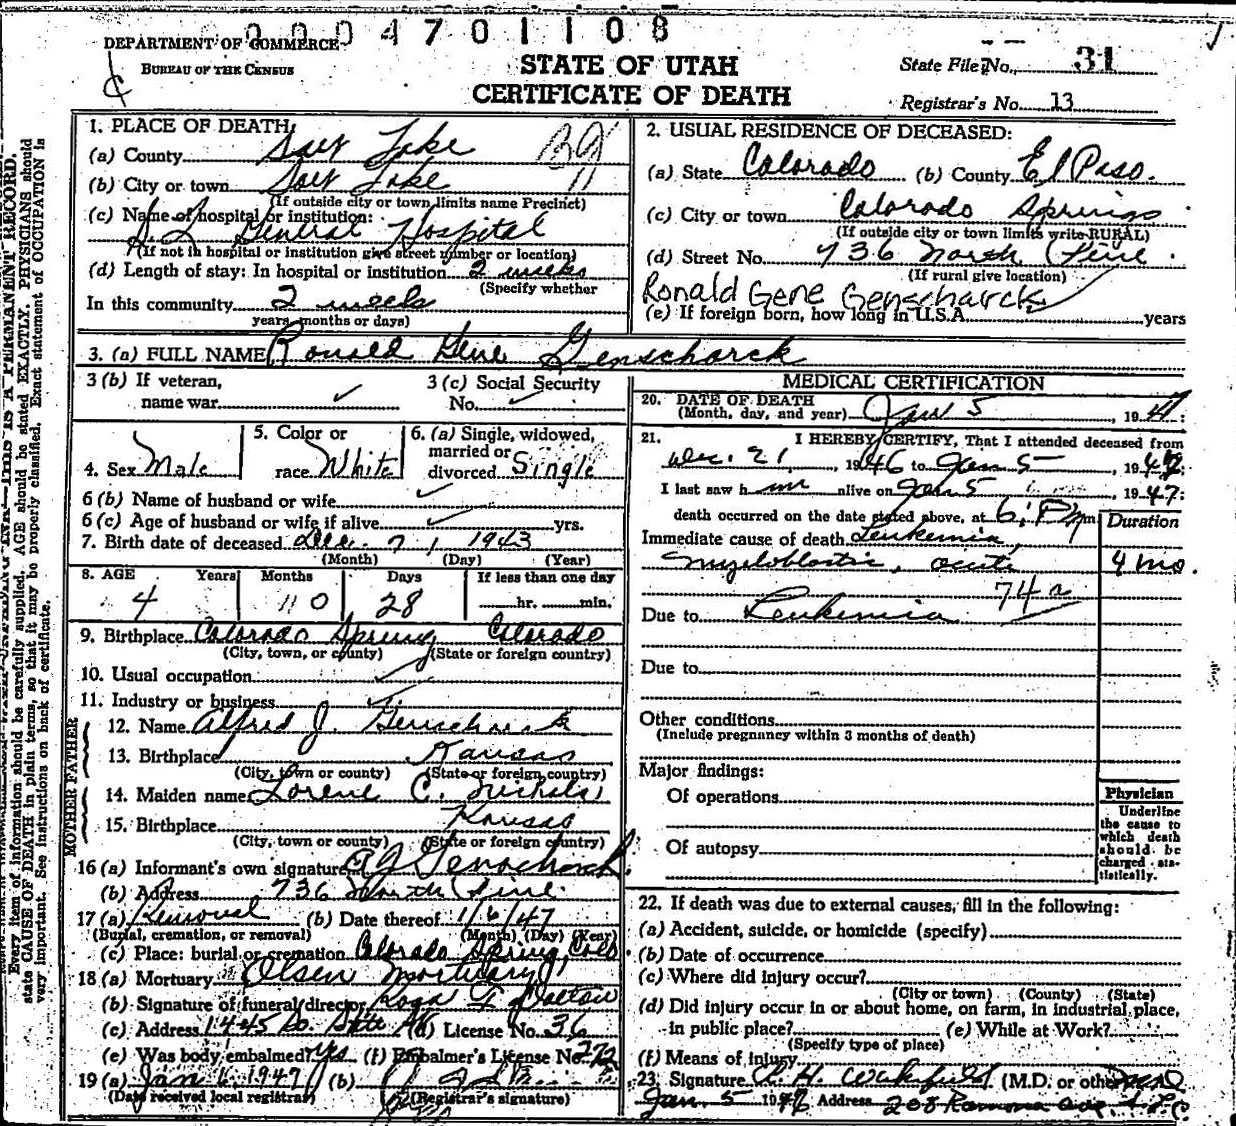 0004701108
DEPARTMENT OF COMMERCE
BUREAU OF THE CENSUS
STATE OF UTAH
CERTIFICATE OF DEATH
State File No. 31
Registrar's No. 13
1. PLACE OF DEATH
(a) County Salt Lake
(b) City or town Salt Lake
(If outside city or town limits name Precinct)
(c) Name of hospital or institution:
S. L. General Hospital
(If not in hospital or institution give street number or location)
(d) Length of stay: In hospital or institution 2 weeks
(Specify whether
In this community 2 weeks
years, months or days)
2. USUAL RESIDENCE OF DECEASED:
(a) State Colorado (b) County El Paso.
(c) City or town Colorado Springs
(If outside city or town limits write RURAL)
(d) Street No. 736 North Pine
(If rural give location)
Ronald Gene Genscharck
(e) If foreign born, how long in U.S.A. years
3. (a) FULL NAME Ronald Gene Genscharck
3 (b) If veteran,
name war
3 (c) Social Security
No.
4. Sex Male
5. Color or
race White
6. (a) Single, widowed,
married or
divorced Single
6 (b) Name of husband or wife
6 (c) Age of husband or wife if alive yrs.
7. Birth date of deceased Dec. 7, 1943
(Month) (Day) (Year)
8. AGE Years Months Days If less than one day
4 0 28 hr. min.
9. Birthplace Colorado Springs Colorado
(City, town, or county) (State or foreign country)
10. Usual occupation
11. Industry or business
FATHER
12. Name Alfred J. Genscharck
13. Birthplace Kansas
(City, town or county) (State or foreign country)
MOTHER
14. Maiden name Lorene C. Nichols
15. Birthplace Kansas
(City, town or county) (State or foreign country)
16 (a) Informant's own signature A J Genscharck
(b) Address 736 North Pine
17 (a) Removal (b) Date thereof 1/6/47
(Burial, cremation, or removal) (Month) (Day) (Year)
(c) Place: burial or cremation Colorado Springs, Colo
18 (a) Mortuary Olsen Mortuary
(b) Signature of funeral director
(c) Address 1445 So. State St (d) License No. 36
(e) Was body embalmed? Yes (f) Embalmer's License No. 272
19 (a) Jan 6, 1947 (b)
(Date received local registrar) (Registrar's signature)
MEDICAL CERTIFICATION
20. DATE OF DEATH
(Month, day, and year) Jan 5, 1947
21. I HEREBY CERTIFY, That I attended deceased from
Dec. 21, 1946 to Jan 5, 1947:
I last saw him alive on Jan 5, 1947:
death occurred on the date stated above, at 6: P m
Duration
Immediate cause of death Leukemia,
myeloblastic, acute 4 mo.
74a
Due to Leukemia
Due to
Other conditions
(Include pregnancy within 3 months of death)
Major findings:
Of operations
Of autopsy
Physician
Underline
the cause to
which death
should be
charged sta-
tistically.
22. If death was due to external causes, fill in the following:
(a) Accident, suicide, or homicide (specify)
(b) Date of occurrence
(c) Where did injury occur?
(City or town) (County) (State)
(d) Did injury occur in or about home, on farm, in industrial place,
in public place? (e) While at Work?
(Specify type of place)
(f) Means of injury
23. Signature R. H. Wakefield (M.D. or other)
Jan. 5 1947 Address 208 Ramona Ave. S.L.C.
Every item of information should be carefully supplied. AGE should be stated EXACTLY. PHYSICIANS should
state CAUSE OF DEATH in plain terms, so that it may be properly classified. Exact statement of OCCUPATION is
very important. See instructions on back of certificate.
THIS IS A PERMANENT RECORD.